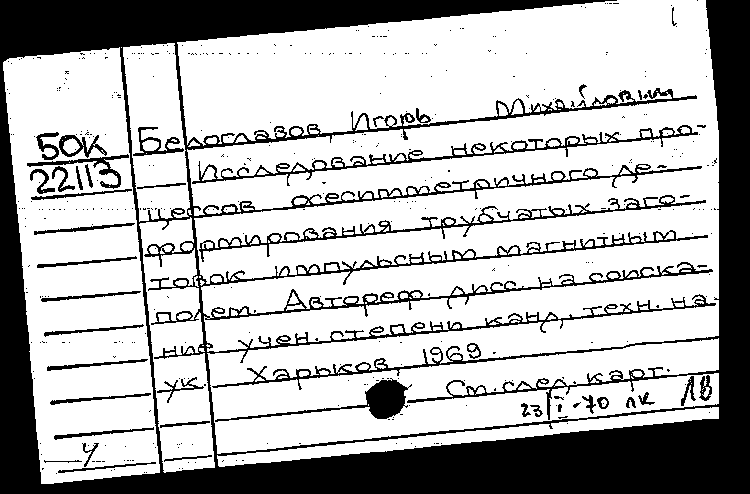 Белоглазов, Игорь Михайлович
БОК
22113
Исследование некоторых про-
цессов осесимметричного де-
формирования трубчатых заго-
товок импульсным магнитным
полем. Автореф. дисс. на соиска-
ние учен. степени канд. техн. на-
ук. Харьков, 1969.
См. след. карт.
23/I-70 ЛК ЛВ
У